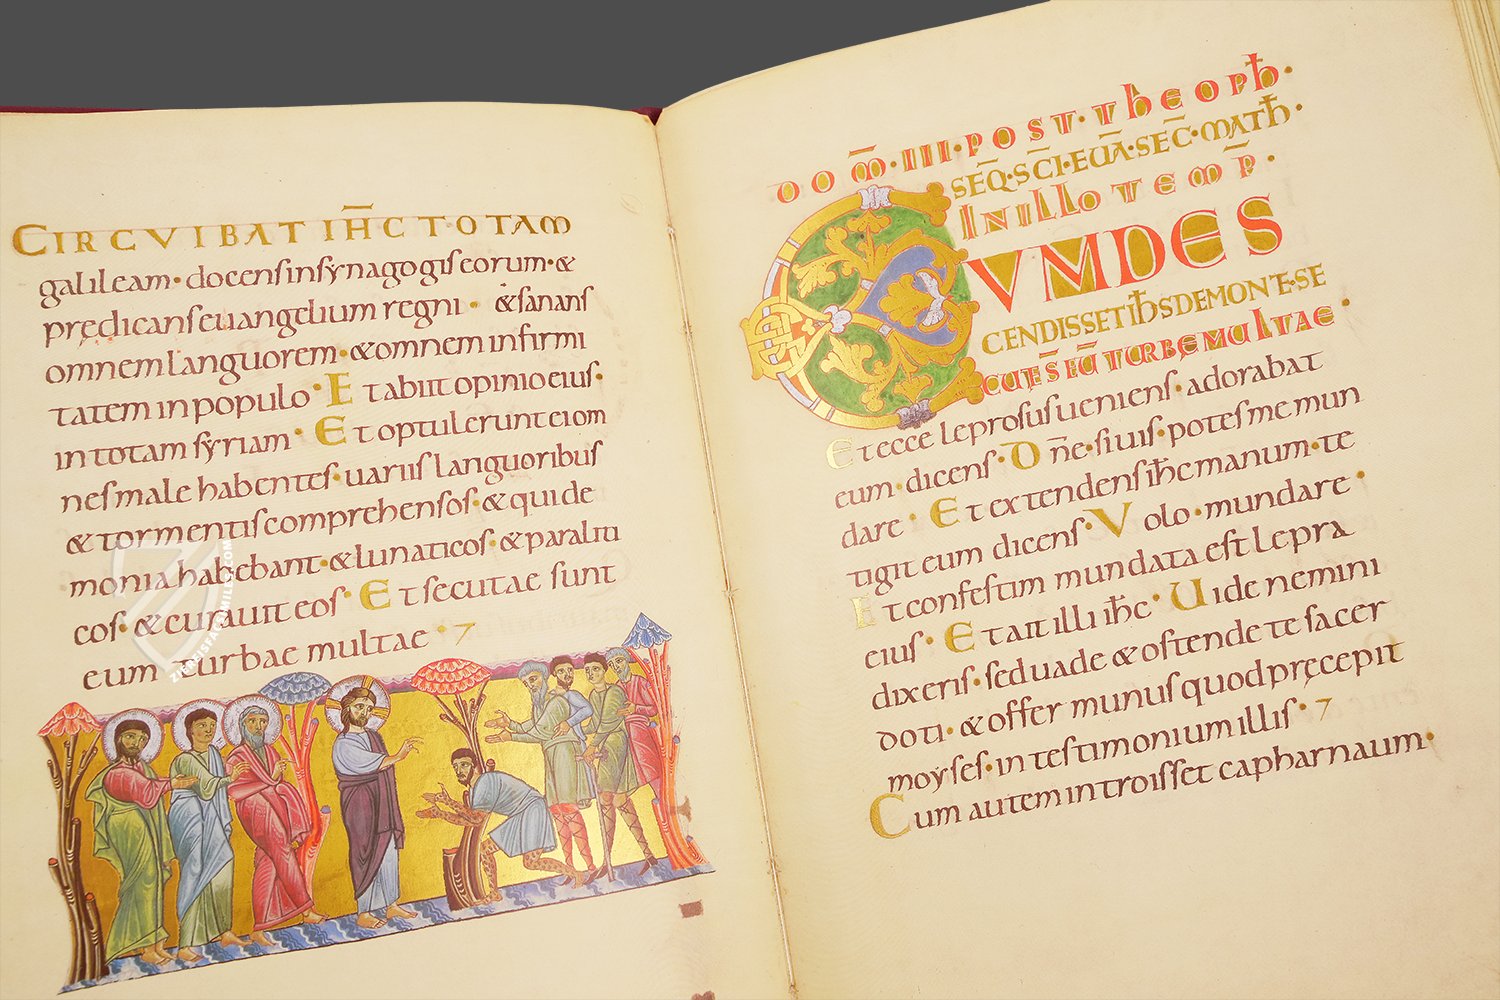 CIRCVIBAT IH̅C TOTAM
galileam · docens in synagogis eorum · &
prędicans euangelium regni · & sanans
omnem languorem · & omnem infirmi
tatem in populo · Et abiit opinio eius ·
in totam syriam · Et optulerunt ei om
nes male habentes · uariis languoribus
& tormentis comprehensos · & qui de
monia habebant · & lunaticos · & paraliti
cos · & curauit eos · Et secutae sunt
eum turbae multae · 7
ZIEREISFACSIMILES.COM
DOM̅ · III · POST · THEOPħ ·
SEQ̅ · SC̅I · EUA̅ · SEC̅ · MATħ ·
IN ILLO TEMP̅ ·
CVM DES
CENDISSET IħS DE MONTE · SE
CUTE S̅ EU̅ TURBE MULTAE ·
Et ecce leprosus ueniens · adorabat
eum · dicens · Dn̅e · si uis · potes me mun
dare · Et extendens ih̅c manum · te
tigit eum dicens · Volo · mundare ·
Et confestim mundata est lepra
eius · Et ait illi ih̅c · Uide nemini
dixeris · sed uade & ostende te sacer
doti · & offer munus quod pręcepit
moyses · in testimonium illis · 7
Cum autem introisset capharnaum ·